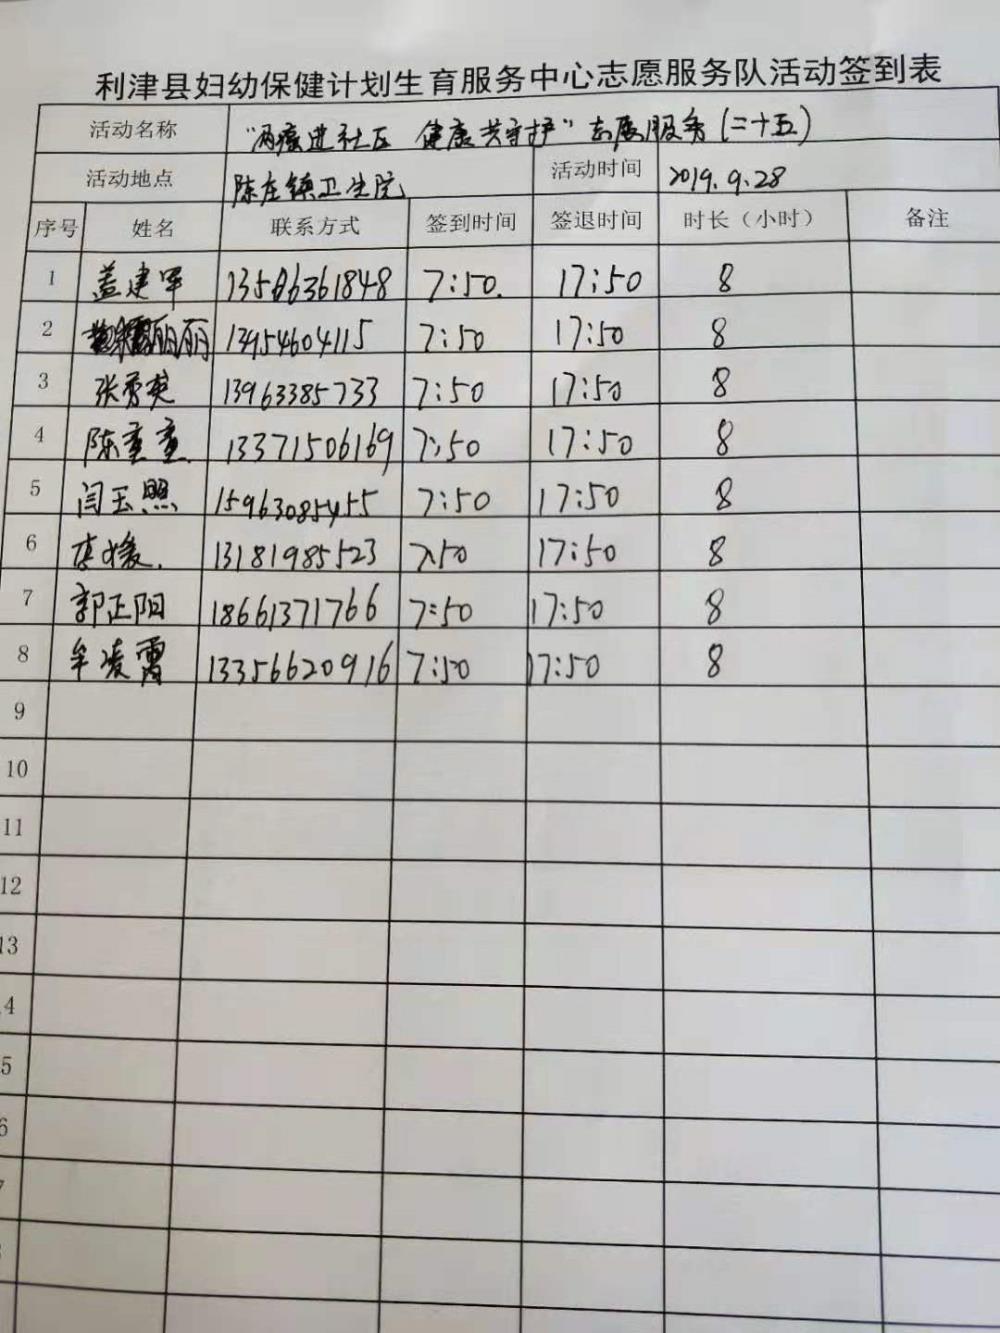 利津县妇幼保健计划生育服务中心志愿服务队活动签到表
活动名称 "两癌进社区 健康共守护"志愿服务(二十五)
活动地点 陈庄镇卫生院 活动时间 2019.9.28
序号 姓名 联系方式 签到时间 签退时间 时长（小时） 备注
1 盖建军 13506361848 7:50. 17:50 8
2 丽丽 13954604115 7:50 17:50 8
3 张秀英 13963385733 7:50 17:50 8
4 陈童童 13371506169 7:50 17:50 8
5 闫玉照 15963085455 7:50 17:50 8
6 李媛. 13181985523 7:50 17:50 8
7 郭正阳 18661371766 7:50 17:50 8
8 牟凌霄 13356620916 7:50 17:50 8
9
10
11
12
13
4
5
6
7